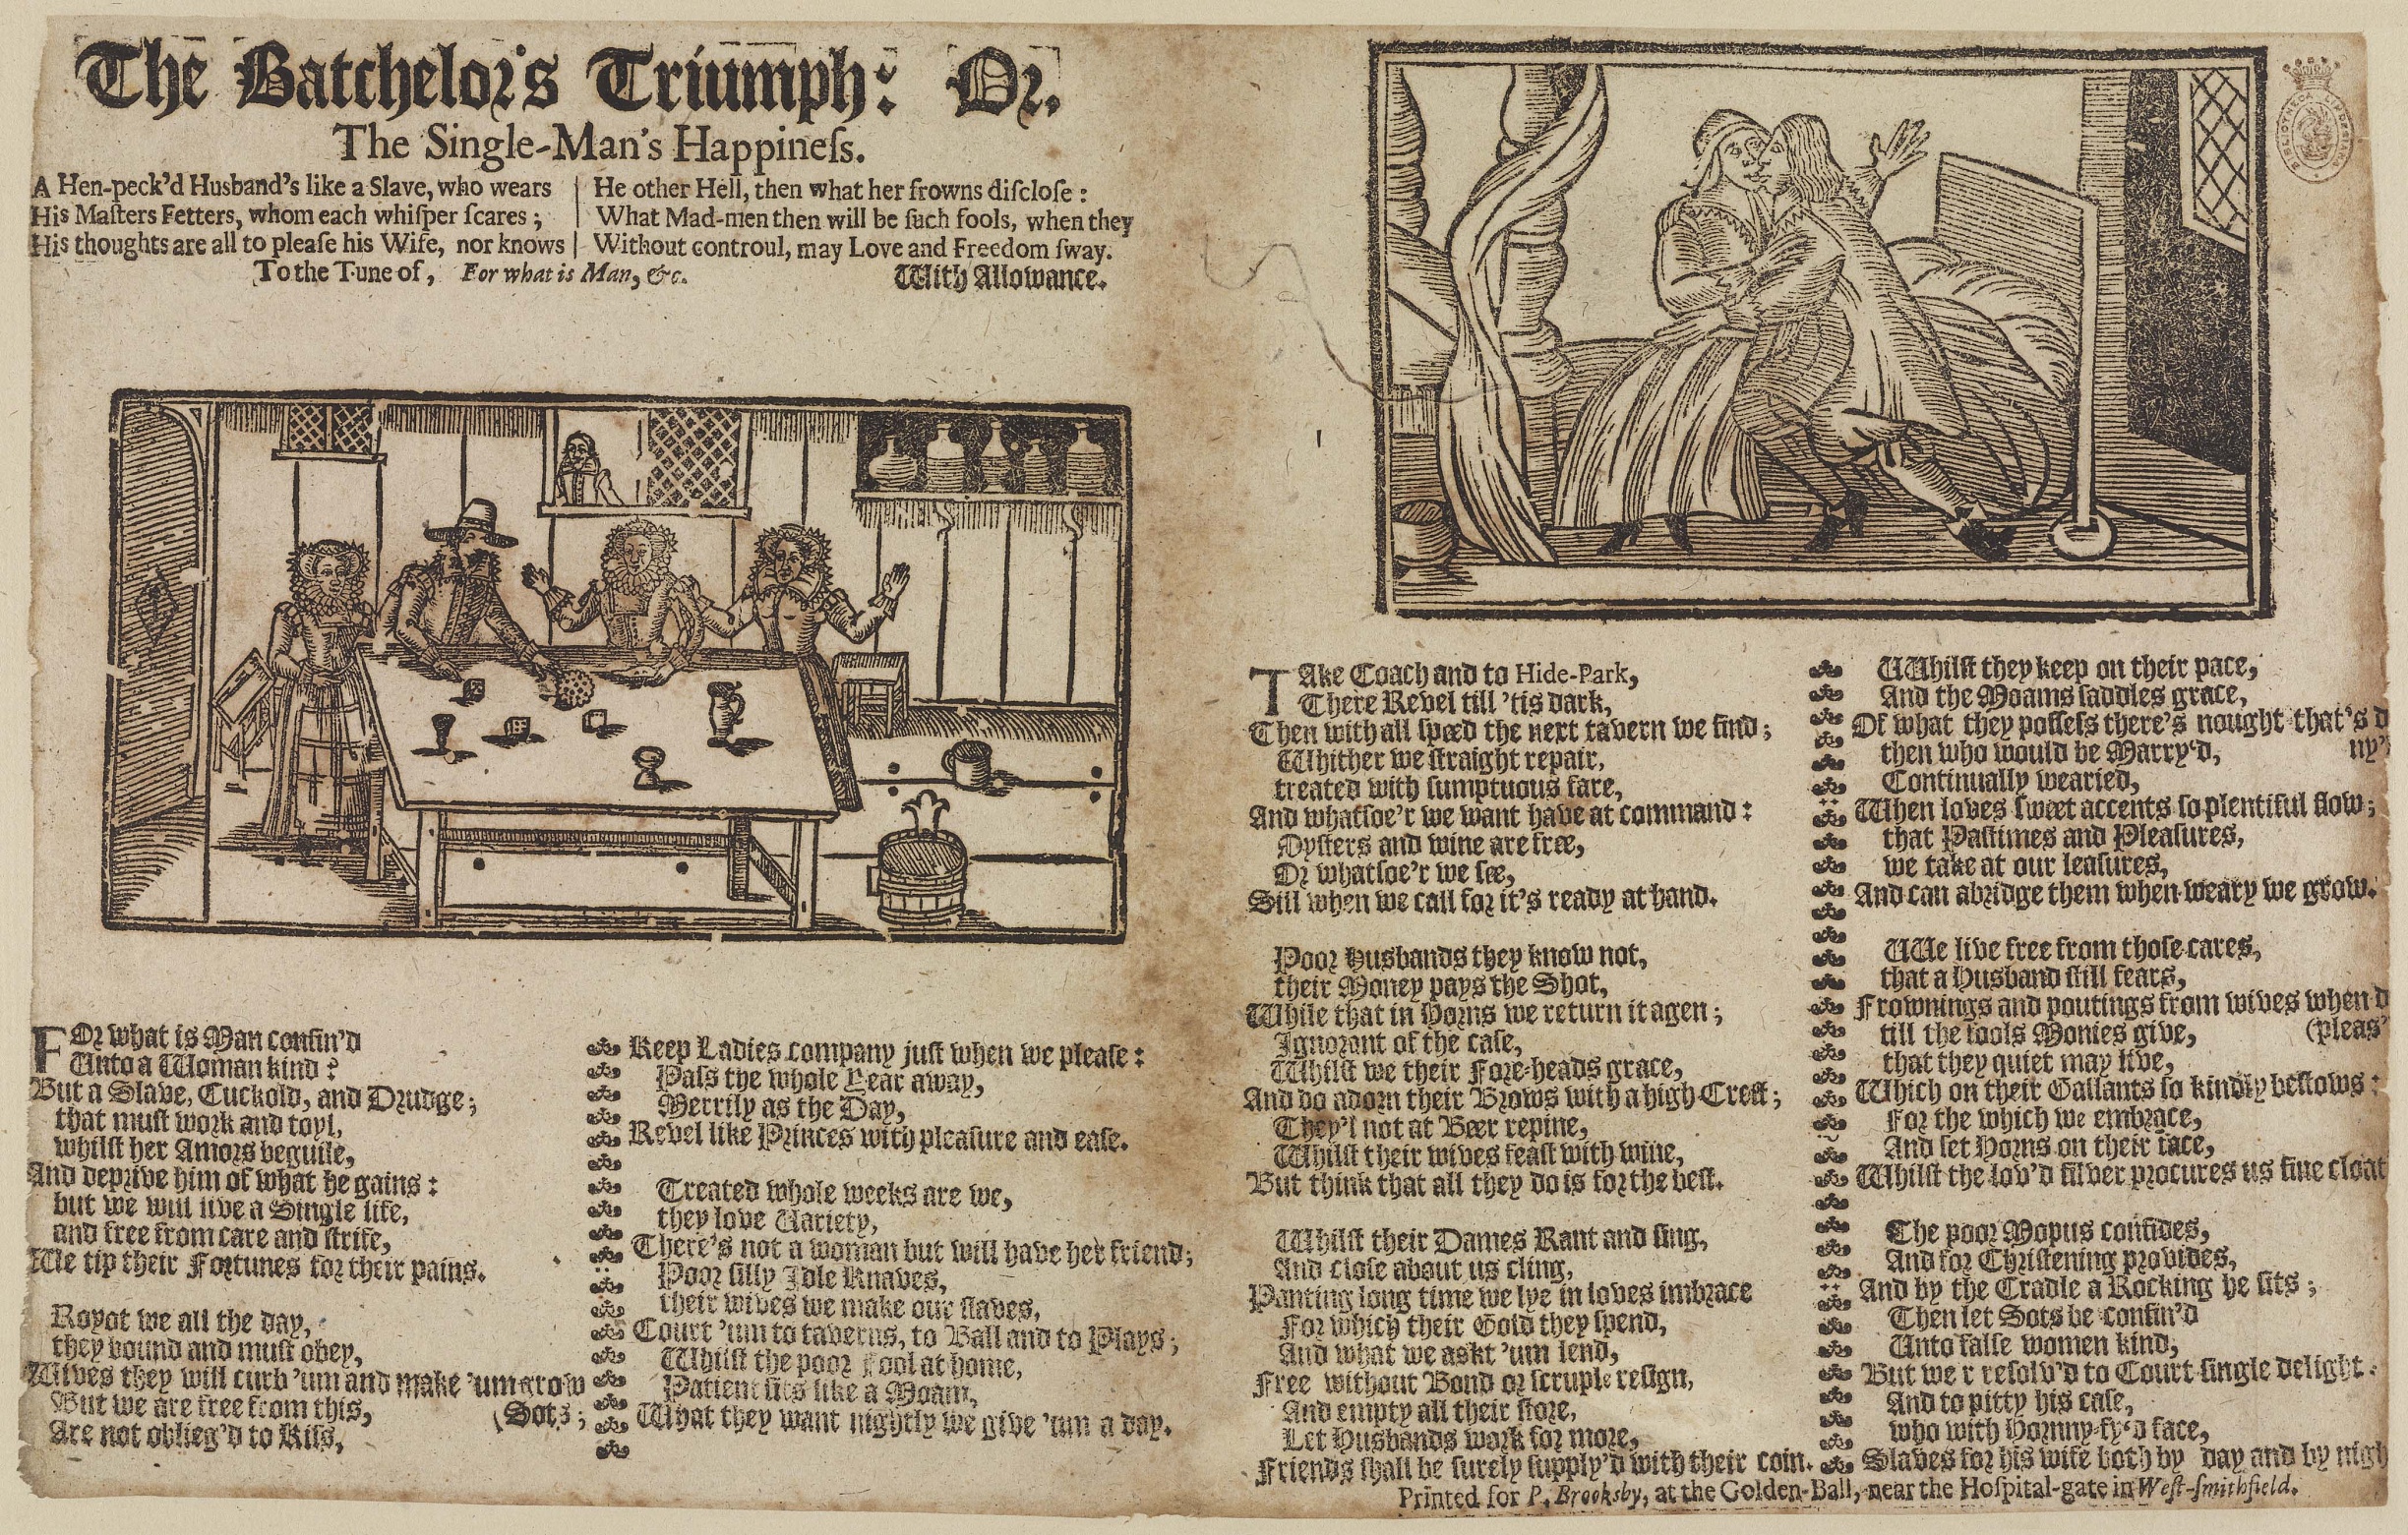 The Batchelor's Triumph: Or,
The Single-Man's Happineſs.
A Hen-peck'd Husband's like a Slave, who wears
His Maſters Fetters, whom each whiſper ſcares;
His thoughts are all to pleaſe his Wife, nor knows
He other Hell, then what her frowns diſcloſe:
What Mad-men then will be ſuch fools, when they
Without controul, may Love and Freedom ſway.
To the Tune of, For what is Man, &c.
With Allowance.
FOr what is Man confin'd
Unto a Woman kind?
But a Slave, Cuckold, and Drudge;
that muſt work and toyl,
whilſt her Amors beguile,
And deprive him of what he gains:
but we will live a Single life,
and free from care and ſtrife,
We tip their Fortunes for their pains.
Royot we all the day,
they bound and muſt obey,
Wives they will curb 'um and make 'um grow
But we are free from this, (Sots;
Are not oblieg'd to Kiſs,
Keep Ladies company juſt when we pleaſe:
Paſs the whole Year away,
Merrily as the Day,
Revel like Princes with pleaſure and eaſe.
Treated whole weeks are we,
they love Variety,
There's not a woman but will have her friend;
Poor ſilly Idle Knaves,
their wives we make our ſlaves,
Court 'um to taverns, to Ball and to Plays;
Whilſt the poor Fool at home,
Patient ſits like a Moam,
What they want nightly we give 'um a day.
TAke Coach and to Hide-Park,
There Revel till 'tis dark,
Then with all ſpeed the next tavern we find;
Whither we ſtraight repair,
treated with ſumptuous fare,
And whatſoe'r we want have at command:
Oyſters and wine are free,
Or whatſoe'r we ſee,
Sill when we call for it's ready at hand.
Poor Husbands they know not,
their Money pays the Shot,
While that in Horns we return it agen;
Ignorant of the caſe,
Whilſt we their Fore-heads grace,
And do adorn their Brows with a high Creſt;
They'l not at Beer repine,
Whilſt their wives feaſt with wine,
But think that all they do is for the beſt.
Whilſt their Dames Rant and ſing,
And cloſe about us cling,
Panting long time we lye in loves imbrace
For which their Gold they ſpend,
And what we askt 'um lend,
Free without Bond or ſcruple reſign,
And empty all their ſtore,
Let Husbands work for more,
Friends ſhall be ſurely ſupply'd with their coin.
UUhilſt they keep on their pace,
And the Moams ſaddles grace,
Of what they poſſeſs there's nought that's d
then who would be Marry'd, ny'
Continually wearied,
When loves ſweet accents ſo plentiful flow;
that Paſtimes and Pleaſures,
we take at our leaſures,
And can abridge them when weary we grow.
UUe live free from thoſe cares,
that a Husband ſtill fears,
Frownings and poutings from wives when d
till the fools Monies give, (pleas'
that they quiet may live,
Which on their Gallants ſo kindly beſtows:
For the which we embrace,
And ſet Horns on their face,
Whilſt the lov'd ſilver procures us fine cloat
The poor Mopus confides,
And for Chriſtening provides,
And by the Cradle a Rocking he ſits;
Then let Sots be confin'd
Unto falſe women kind,
But we r reſolv'd to Court ſingle delight:
And to pitty his caſe,
who with Hornny-fy'd face,
Slaves for his wife both by day and by nigh
Printed for P. Brooksby, at the Golden-Ball, near the Hoſpital-gate in Weſt-ſmithfield.